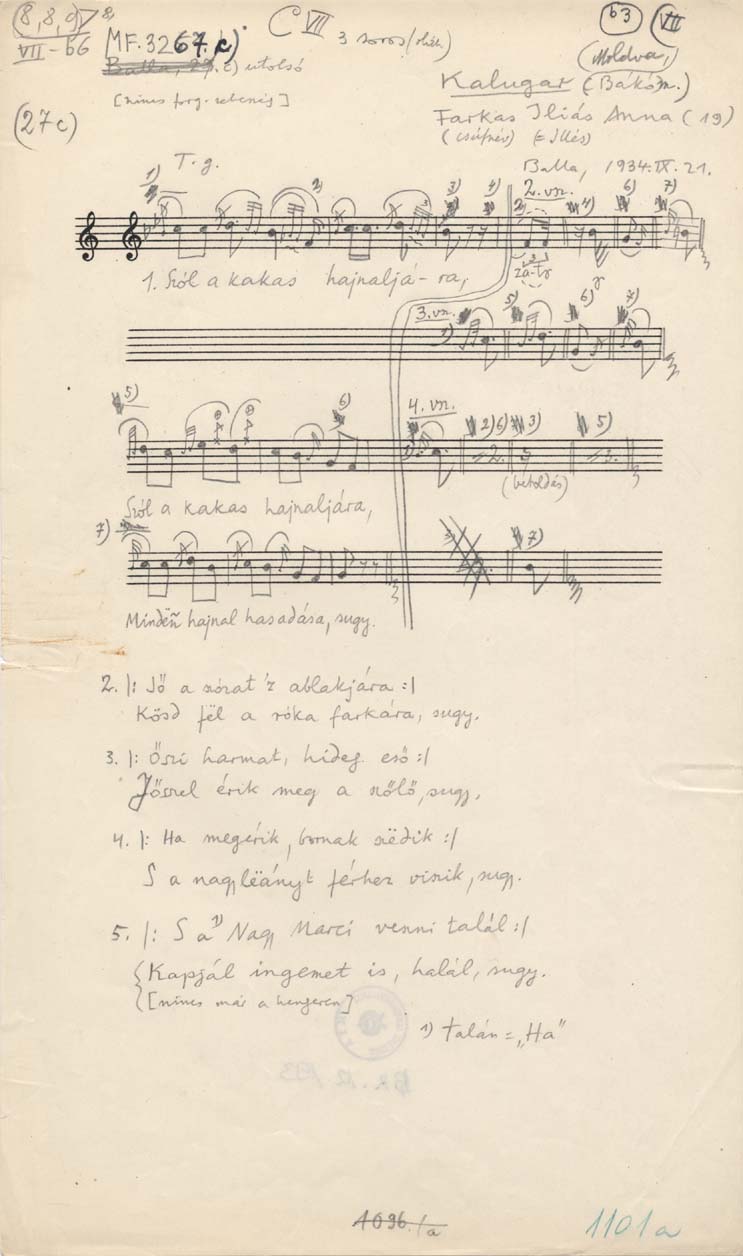 (8, 8, 9)
VII - 66
MF. 3267. c)
C VII
3 soros
b3 VII
Balla, 27. c) utolsó
(Moldva,)
Kalugar (Bákó m.)
[nincs forg. sebesség]
(27c)
Farkas Iliás Anna (19)
(csúfnév) (= Illés)
Balla, 1934. IX. 21.
T. g.
1) 2) 3) 4) 2. vn. 4) 6) 7)
1. Szól a kakas hajnaljá - ra,
3. vn. 5) 6) 7)
5) 6) 4. vn. 2) 6) 3) 5)
(betoldás)
Szól a kakas hajnaljára,
7) 7)
Mindën hajnal hasadása, sugy.
2. |: Jő a szózat 'z ablakjára :|
Kösd fël a róka farkára, sugy.
3. |: Őszi harmat, hideg eső :|
Jősszel érik meg a szőlő, sugy.
4. |: Ha megérik, bornak szëdik :|
S a nagylëányt férhez viszik, sugy.
5. |: S a 1) Nagy Marci venni talál :|
Kapjál ingemet is, halál, sugy.
[nincs már a hengeren]
1) talán = „Ha"
1096/a
1101a